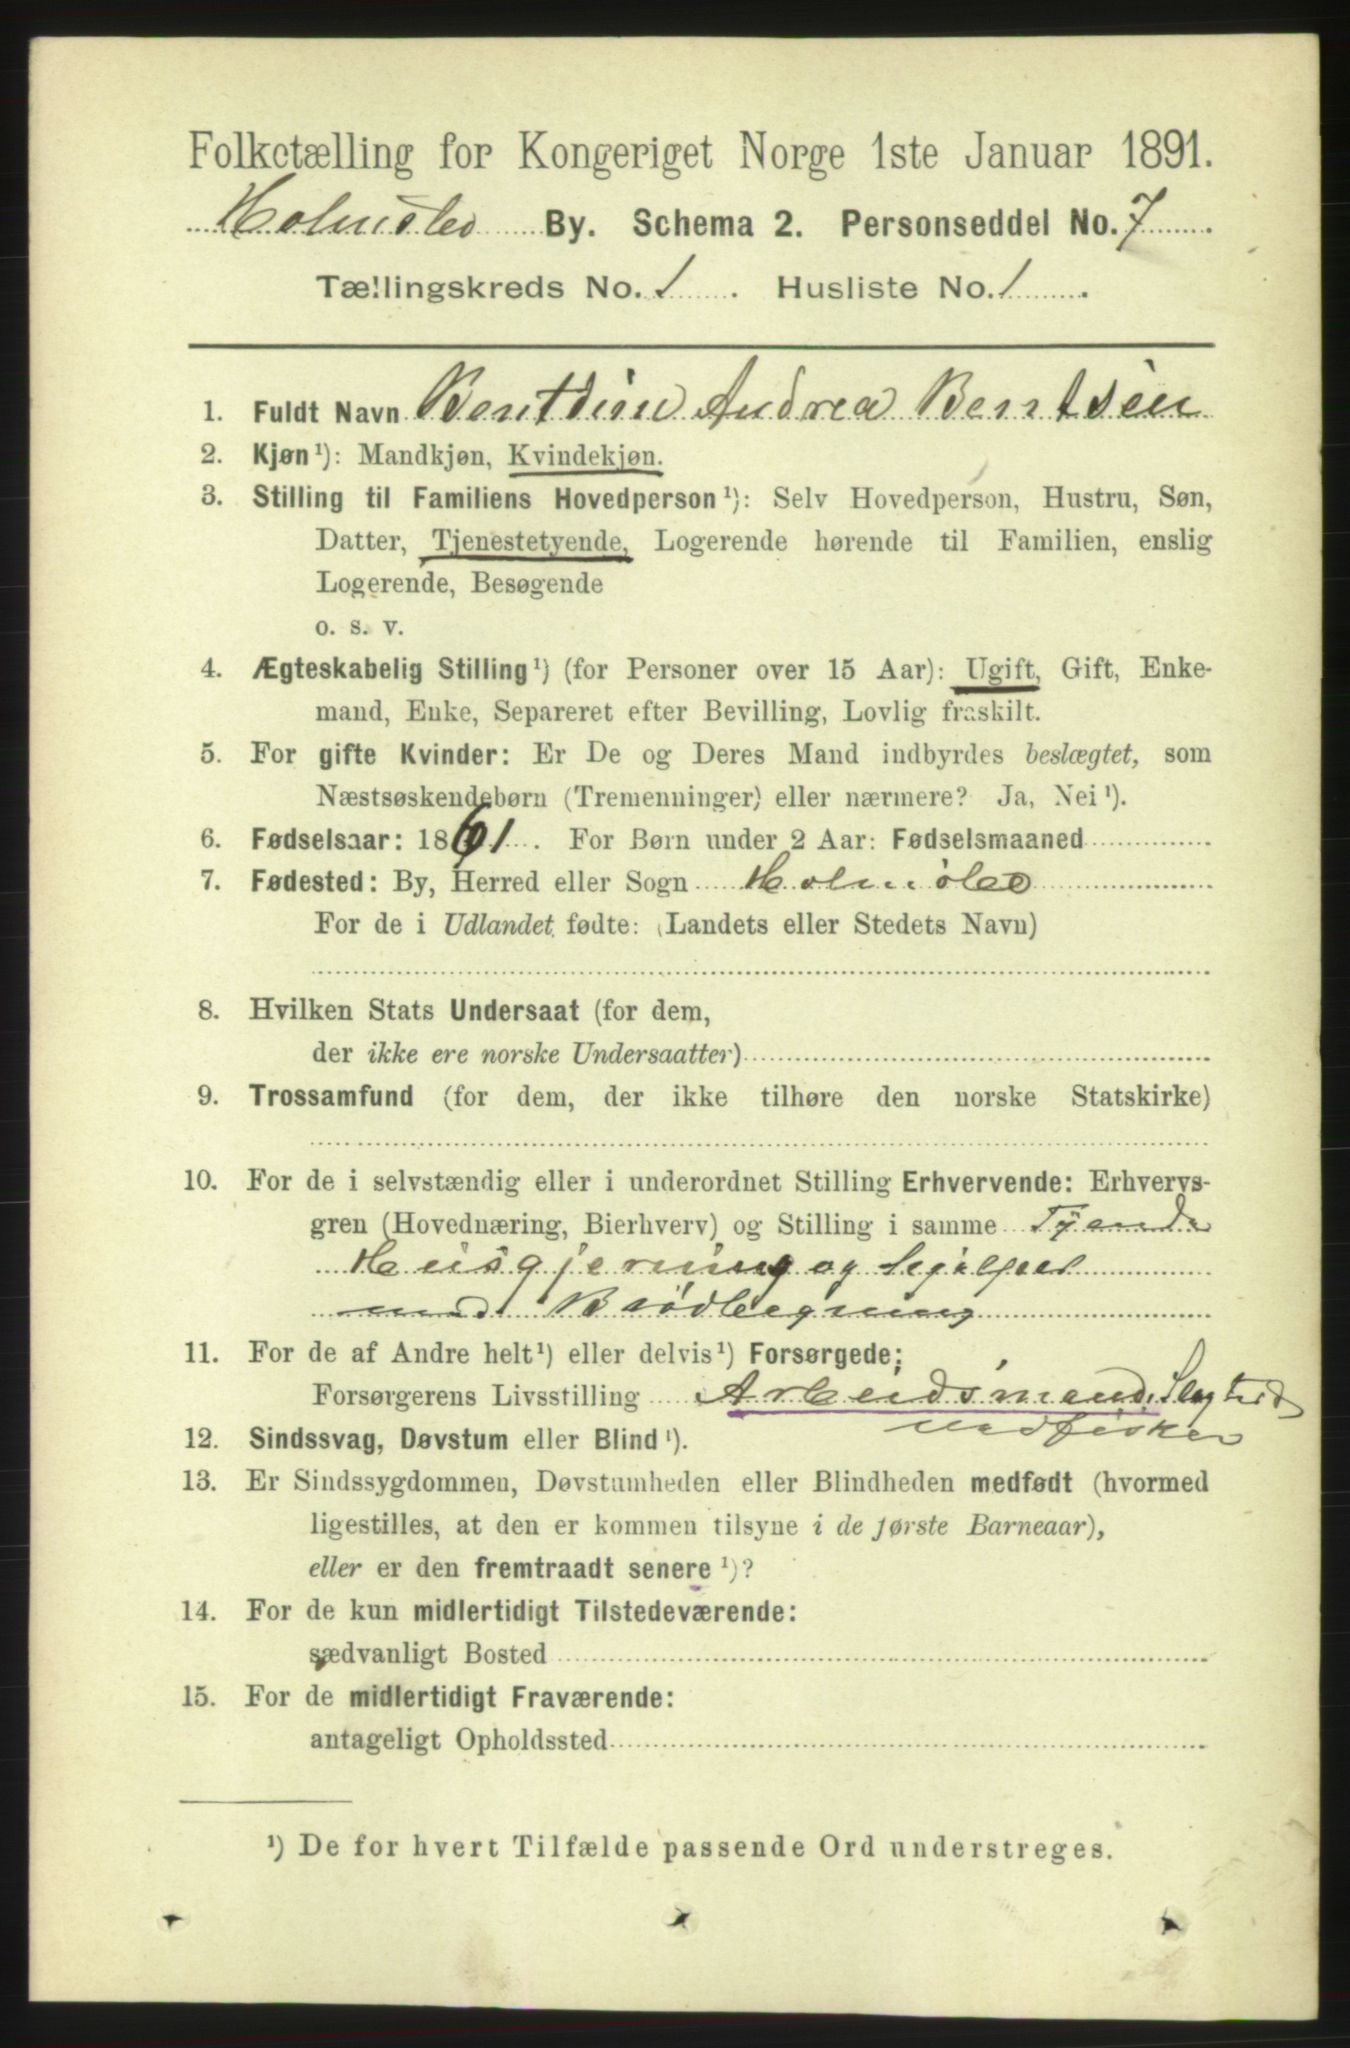 Folketælling for Kongeriget Norge 1ste Januar 1891.
Holmsbo By. Schema 2. Personseddel No. 7
Tællingskreds No. 1. Husliste No. 1.
1. Fuldt Navn Bentdine Andrea Bentsen
2. Kjøn¹): Mandkjøn, Kvindekjøn.
3. Stilling til Familiens Hovedperson¹): Selv Hovedperson, Hustru, Søn,
Datter, Tjenestetyende, Logerende hørende til Familien, enslig
Logerende, Besøgende
o. s. v.
4. Ægteskabelig Stilling¹) (for Personer over 15 Aar): Ugift, Gift, Enke-
mand, Enke, Separeret efter Bevilling, Lovlig fraskilt.
5. For gifte Kvinder: Er De og Deres Mand indbyrdes beslægtet, som
Næstsøskendebørn (Tremenninger) eller nærmere? Ja, Nei¹).
6. Fødselsaar: 1861. For Børn under 2 Aar: Fødselsmaaned
7. Fødested: By, Herred eller Sogn Holmsbo
For de i Udlandet fødte: (Landets eller Stedets Navn)
8. Hvilken Stats Undersaat (for dem,
der ikke ere norske Undersaatter)
9. Trossamfund (for dem, der ikke tilhøre den norske Statskirke)
10. For de i selvstændig eller i underordnet Stilling Erhvervende: Erhvervs-
gren (Hovednæring, Bierhverv) og Stilling i samme Tyende
Husgjerning og hjelper
med
11. For de af Andre helt¹) eller delvis¹) Forsørgede;
Forsørgerens Livsstilling Arbeidsmand,
12. Sindssvag, Døvstum eller Blind¹).
13. Er Sindssygdommen, Døvstumheden eller Blindheden medfødt (hvormed
ligestilles, at den er kommen tilsyne i de første Barneaar),
eller er den fremtraadt senere¹)?
14. For de kun midlertidigt Tilstedeværende:
sædvanligt Bosted
15. For de midlertidigt Fraværende:
antageligt Opholdssted
¹) De for hvert Tilfælde passende Ord understreges.